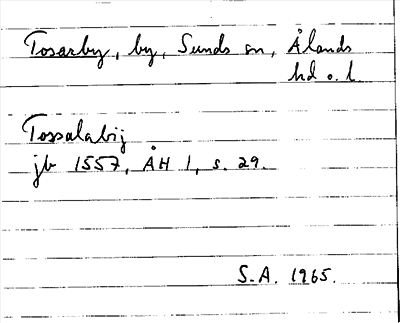 Tosarby, by, Sunds sn, Ålands
hd o. l
Tossalabij
jb 1557, ÅH 1, s. 29.
S.A. 1965.